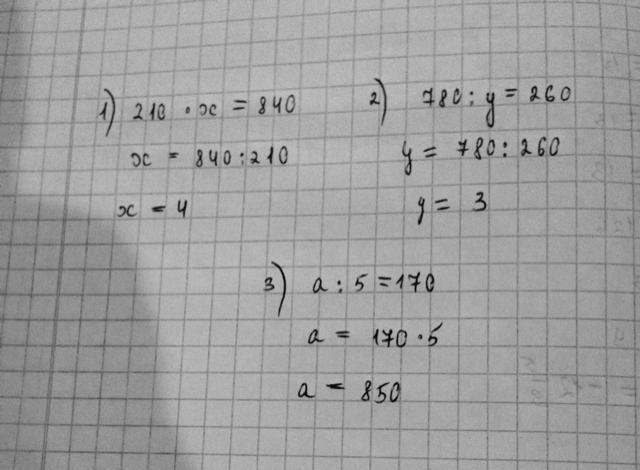 1) 210 · x = 840
x = 840 : 210
x = 4
2) 780 : y = 260
y = 780 : 260
y = 3
3) a : 5 = 170
a = 170 · 5
a = 850